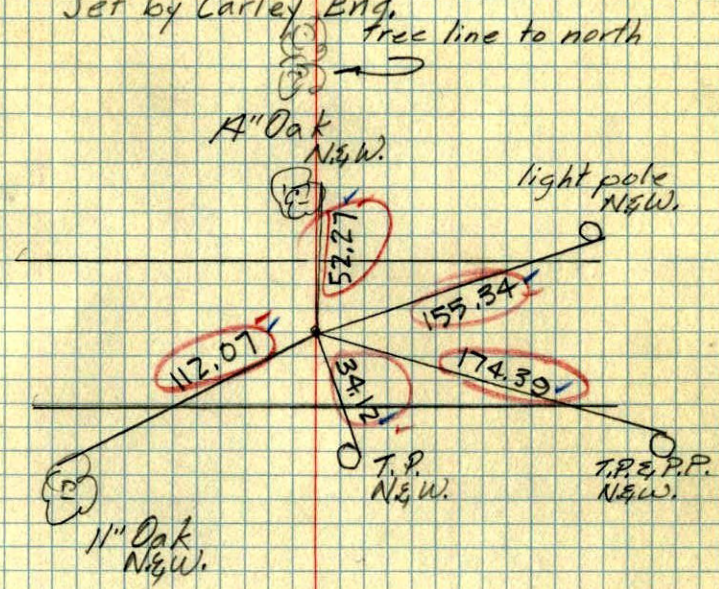 Set by Carley Eng.
tree line to north
14" Oak
N.&W.
light pole
N.&W.
52.27
155.34
112.07
174.39
34.12
T.P.
N.&W.
T.P. & P.P.
N.&W.
11" Oak
N.&W.